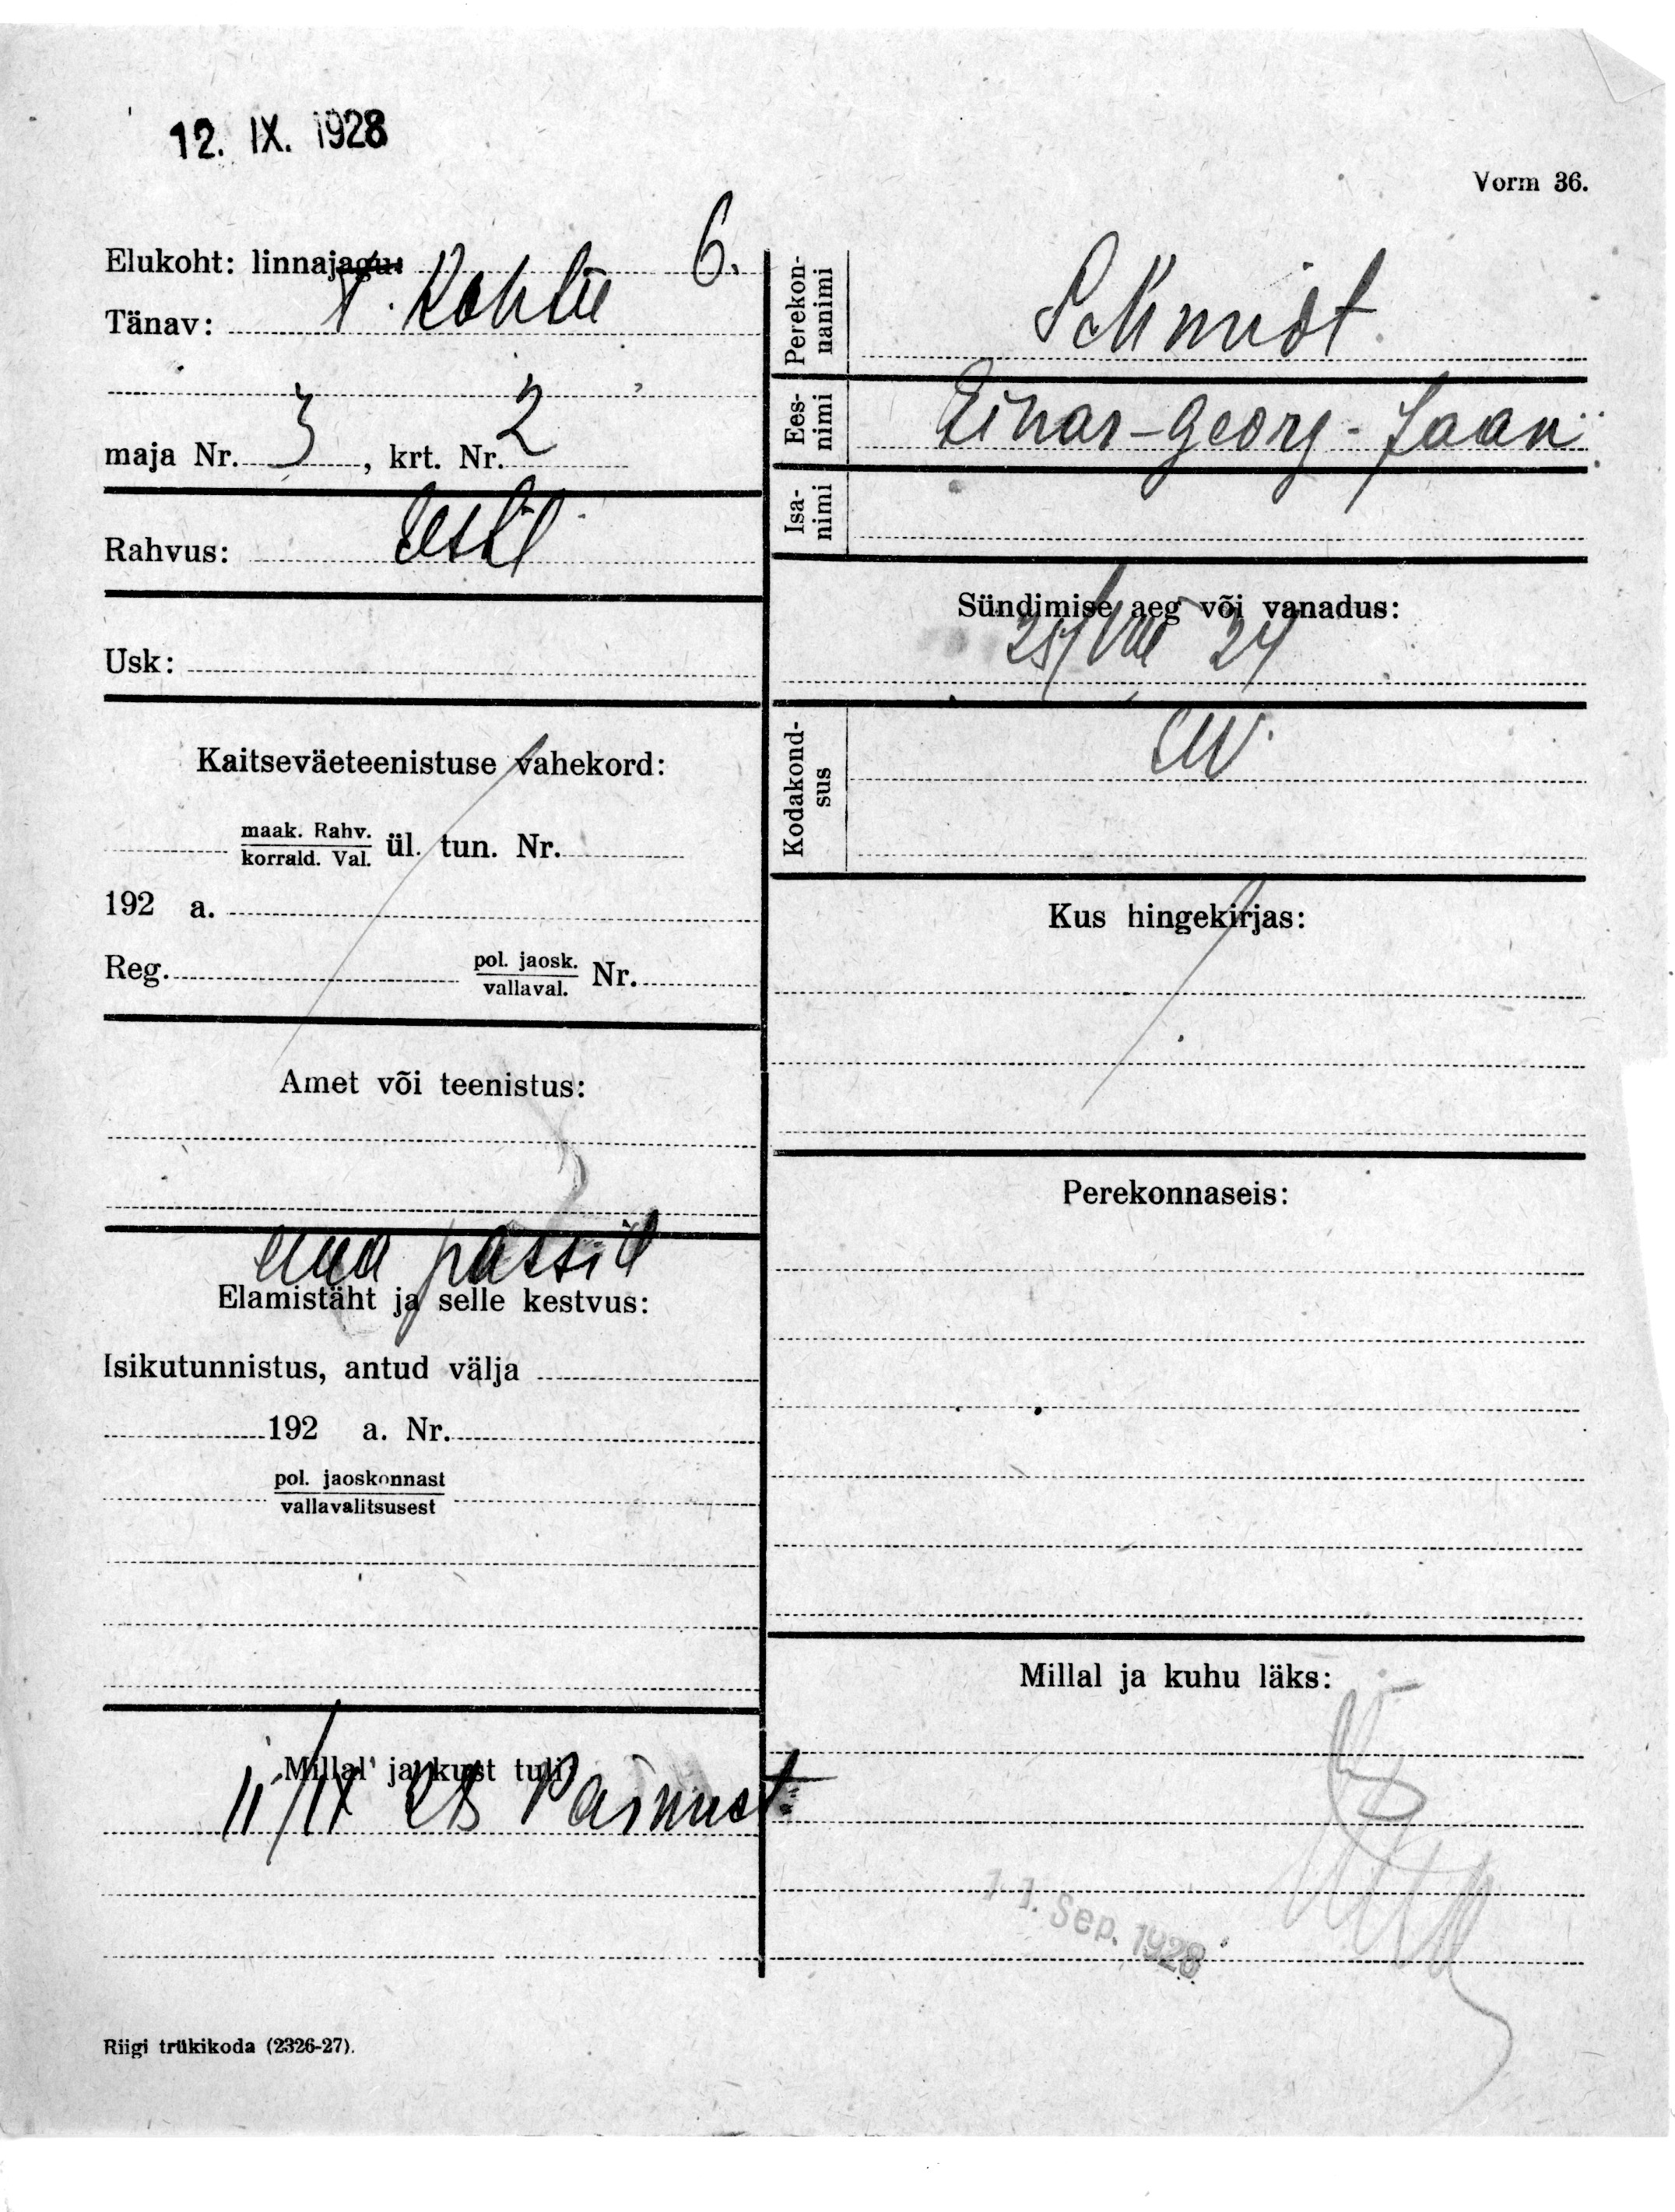 12. IX. 1928
Vorm 36.
Elukoht: linnajagu: 6.
Tänav:
maja Nr. 3, krt. Nr. 2
Rahvus: eesti
Usk:
Kaitseväeteenistuse vahekord:
maak. Rahv.
korrald. Val. ül. tun. Nr.
192 a.
Reg. pol. jaosk.
vallaval. Nr.
Amet või teenistus:
ema passil
Elamistäht ja selle kestvus:
Isikutunnistus, antud välja
192 a. Nr.
pol. jaoskonnast
vallavalitsusest
Millal ja kust tuli:
11/IX 28 Pärnust
Perekonnanimi
Schmidt
Eesnimi
Einar-Georg-Jaan
Isanimi
Sündimise aeg või vanadus:
Kodakondsus
EW.
Kus hingekirjas:
Perekonnaseis:
Millal ja kuhu läks:
11. Sep. 1928
Riigi trükikoda (2326-27).